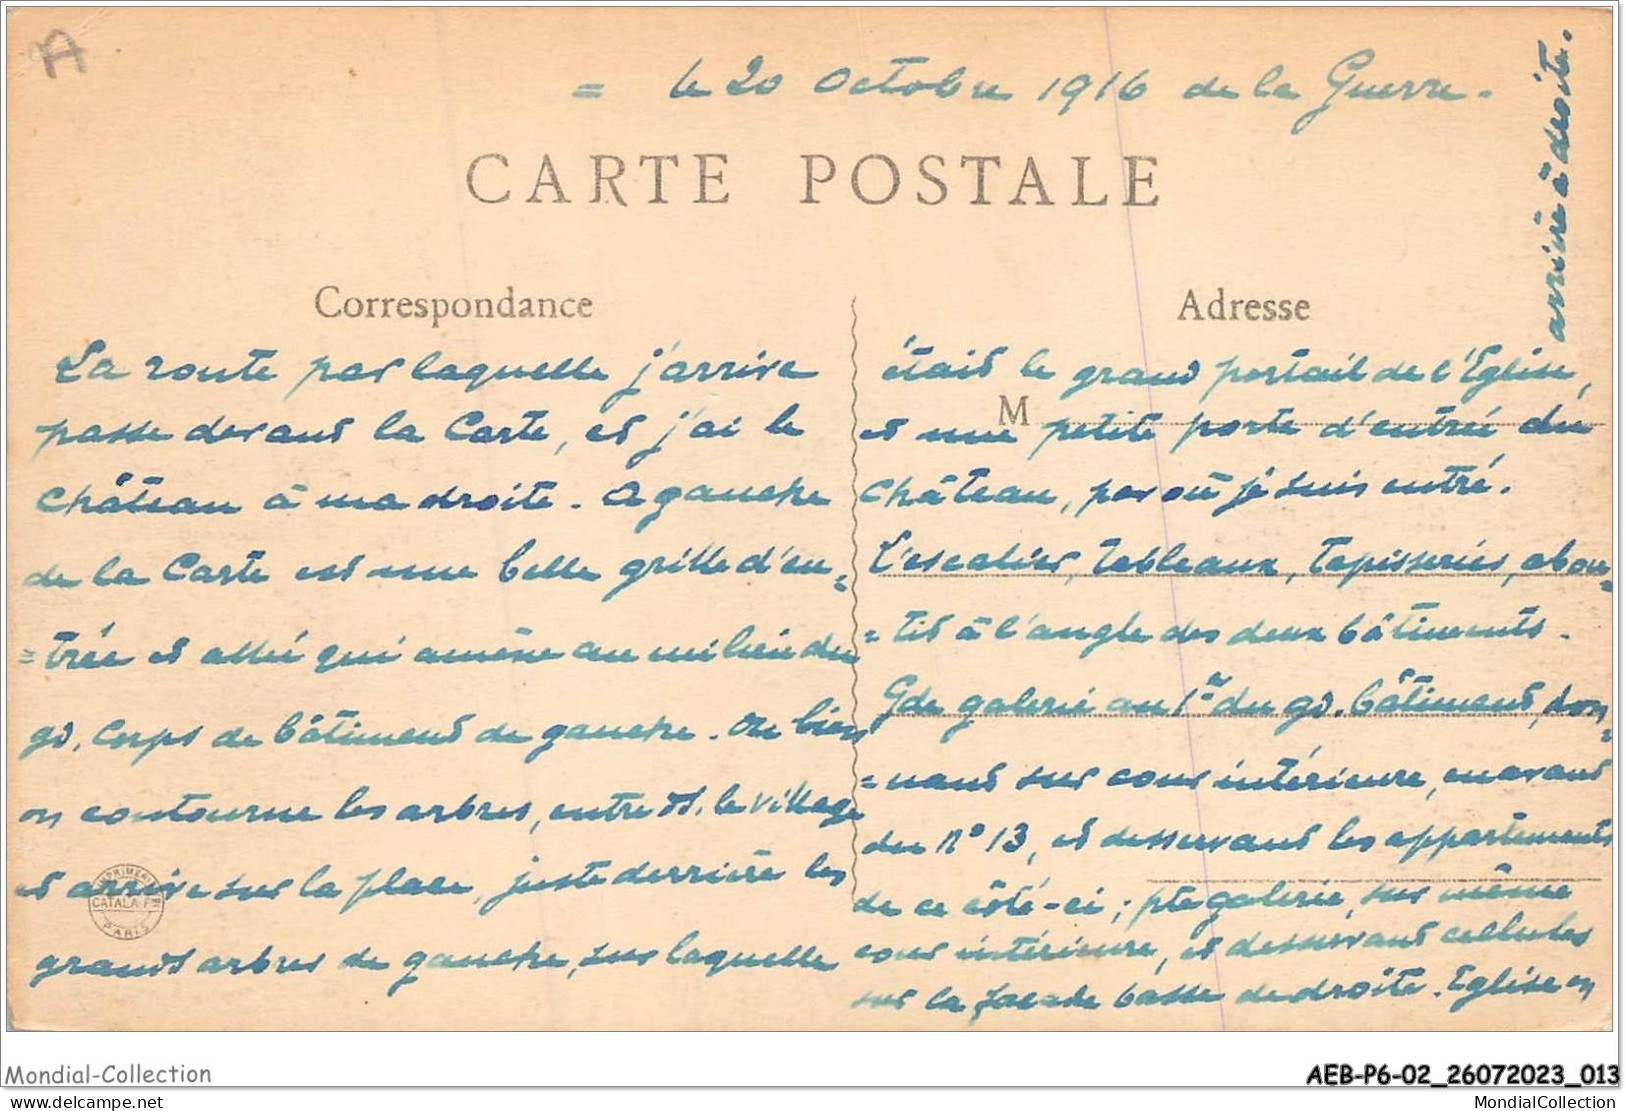 A
= le 20 Octobre 1916 de la Guerre.
CARTE POSTALE
Correspondance
La route par laquelle j'arrive
passe devant la Carte, et j'ai le
Château à ma droite. A gauche
de la Carte est une belle grille d'en=
=trée et allée qui amène au milieu du
gd. Corps de bâtiment de gauche. Ou bien
on contourne les arbres, entre et le village
et arrive sur la place, juste derrière les
grands arbres de gauche, sur laquelle
IMPRIMERIE
CATALA F
PARIS
Adresse
M
était le grand portail de l'Eglise,
et une petite porte d'entrée du
Château, par où je suis entré.
L'escalier, Tableaux, Tapisseries, abou=
=tit à l'angle des deux bâtiments.
Gde galerie au 1er du gd. bâtiment, don=
=nant sur cour intérieure, en avant
du No 13, et desservant les appartements
de ce côté-ci ; pte galerie, sur même
cour intérieure, et desservant cellules
sur la façade basse de droite. Eglise en
arrière à droite.
Mondial-Collection
AEB-P6-02_26072023_013
delcampe.net
MondialCollection